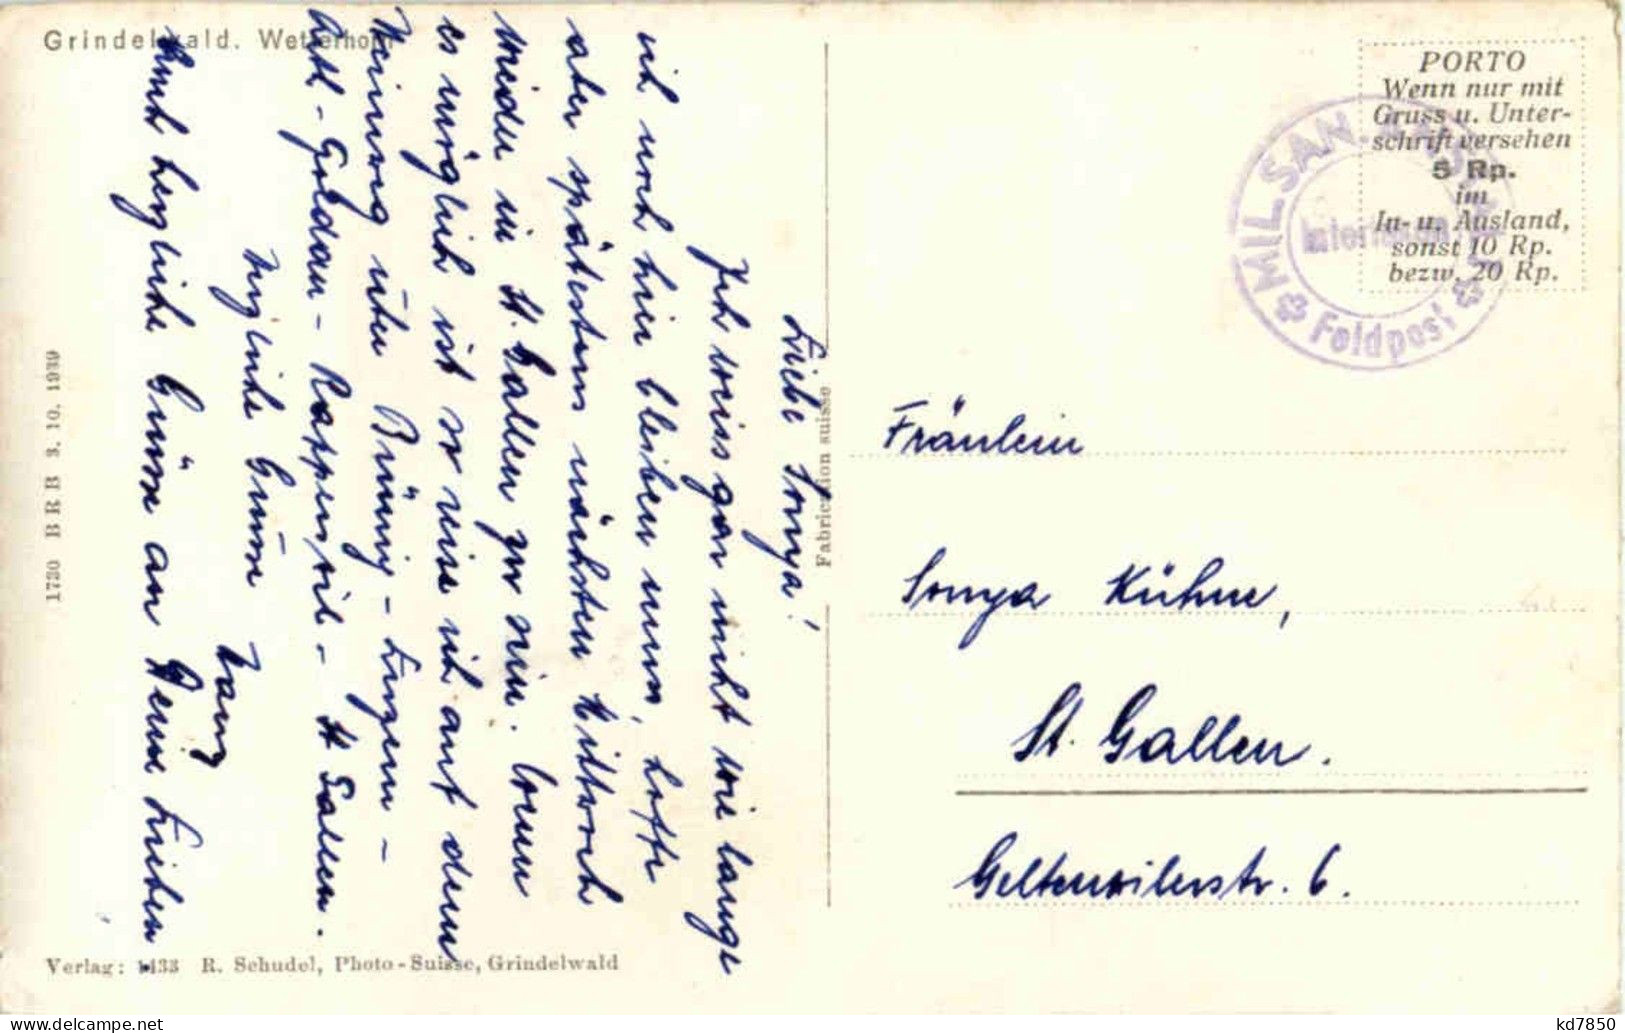 Grindelwald. Wetterhorn
Liebe Sonya!
Ich weiss gar nicht wie lange
ich noch hier bleiben muss, hoffe
aber spätestens nächsten Mittwoch
wieder in St. Gallen zu sein. Wenn
es möglich ist so reise ich auf dem
Heimweg über Brünig - Luzern -
Arth - Goldau - Rapperswil - St Gallen.
Herzliche Grüsse
Auch herzliche Grüsse an Deine Lieben.
1730 BRB 3.10.1939
Verlag: 1433 R. Schudel, Photo-Suisse, Grindelwald
Fabrication suisse
PORTO
Wenn nur mit
Gruss u. Unter-
schrift versehen
5 Rp.
im
In- u. Ausland,
sonst 10 Rp.
bezw. 20 Rp.
MIL. SAN.
Interlaken
Feldpost
Fräulein
Sonya Kühne,
St. Gallen.
Geltenwilerstr. 6.
kd7850